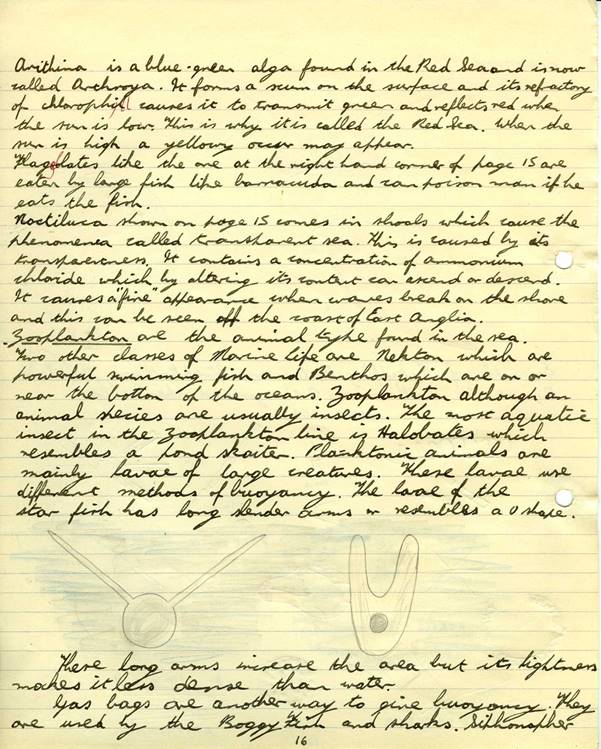 Arithina is a blue-green alga found in the Red Sea and is now
called Archroya. It forms a scum on the surface and its refractory
of chlorophill causes it to transmit green and reflects red when
the sun is low. This is why it is called the Red Sea. When the
sun is high a yellowy occur may appear.
Flagellates like the one at the right hand corner of page 15 are
eaten by large fish like barracuda and can poison man if he
eats the fish.
Noctiluca shown on page 15 comes in shoals which cause the
phenomena called transparent sea. This is caused by its
transparentness. It contains a concentration of ammonium
chloride which by altering its content can ascend or descend.
It causes a "fire" appearance when waves break on the shore
and this can be seen off the coast of East Anglia.
Zooplankton are the animal type found in the sea.
Two other classes of Marine life are Nekton which are
powerful swimming fish and Benthos which are on or
near the bottom of the oceans. Zooplankton although an
animal species are usually insects. The most aquatic
insect in the Zooplankton line is Halobates which
resembles a pond skaiter. Planktonic animals are
mainly larvae of large creatures. These larvae use
different methods of buoyancy. The larvae of the
star fish has long slender arms or resembles a U shape.
These long arms increase the area but its lightness
makes it less dense than water.
Gas bags are another way to give buoyancy. They
are used by the Boggy Fish and sharks. Siphonapher
16